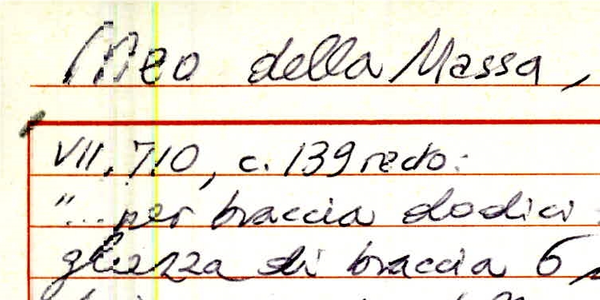 Meo della Massa,
VII.710, c. 139 recto:
"... per braccia dodici
ghezza di braccia 6